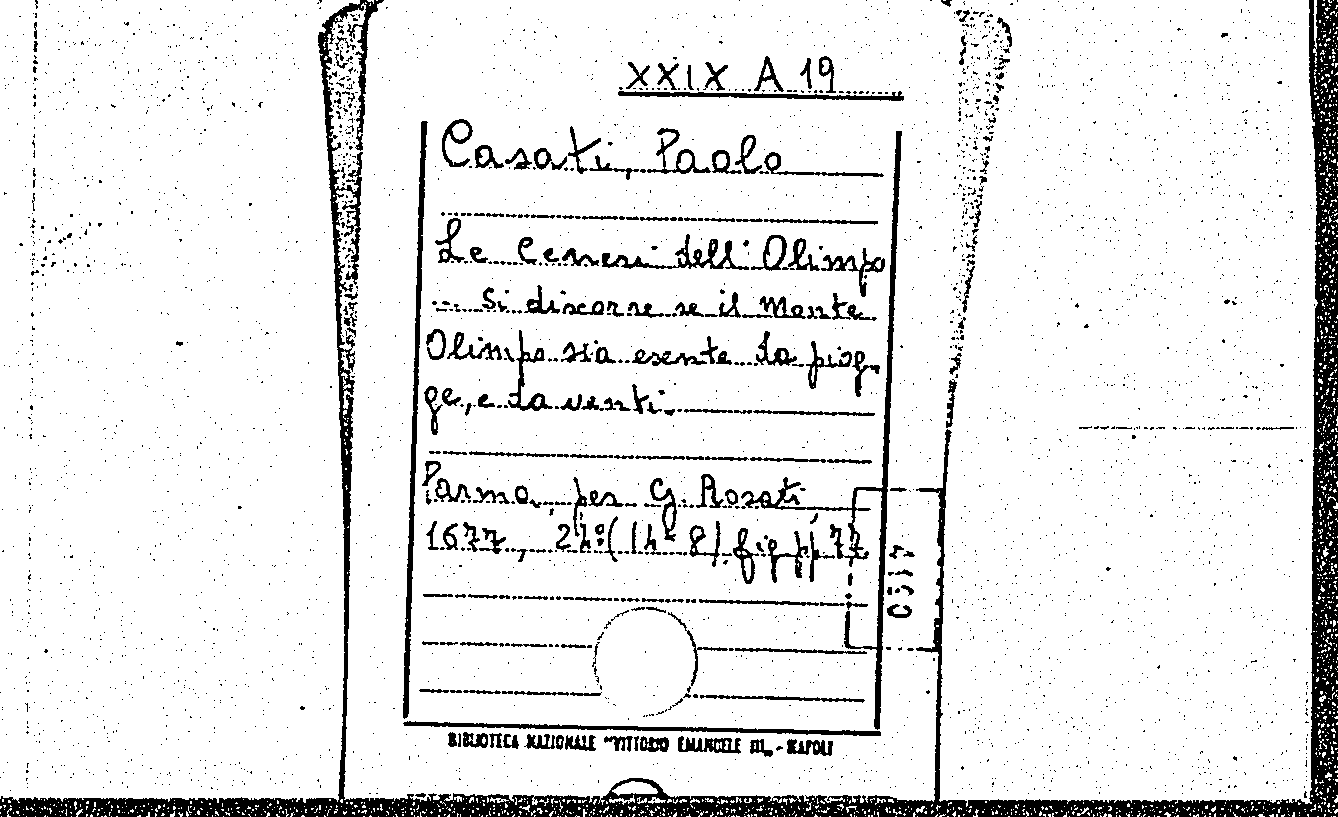 XXIX A 19
Casati, Paolo
Le Ceneri dell'Olimpo
... Si discorre se il Monte
Olimpo sia esente da piog-
ge, e da venti.
Parma, per G. Rosati,
1677, 24º (14-8). fig pp. 77
BIBLIOTECA NAZIONALE "VITTORIO EMANUELE III„ - NAPOLI